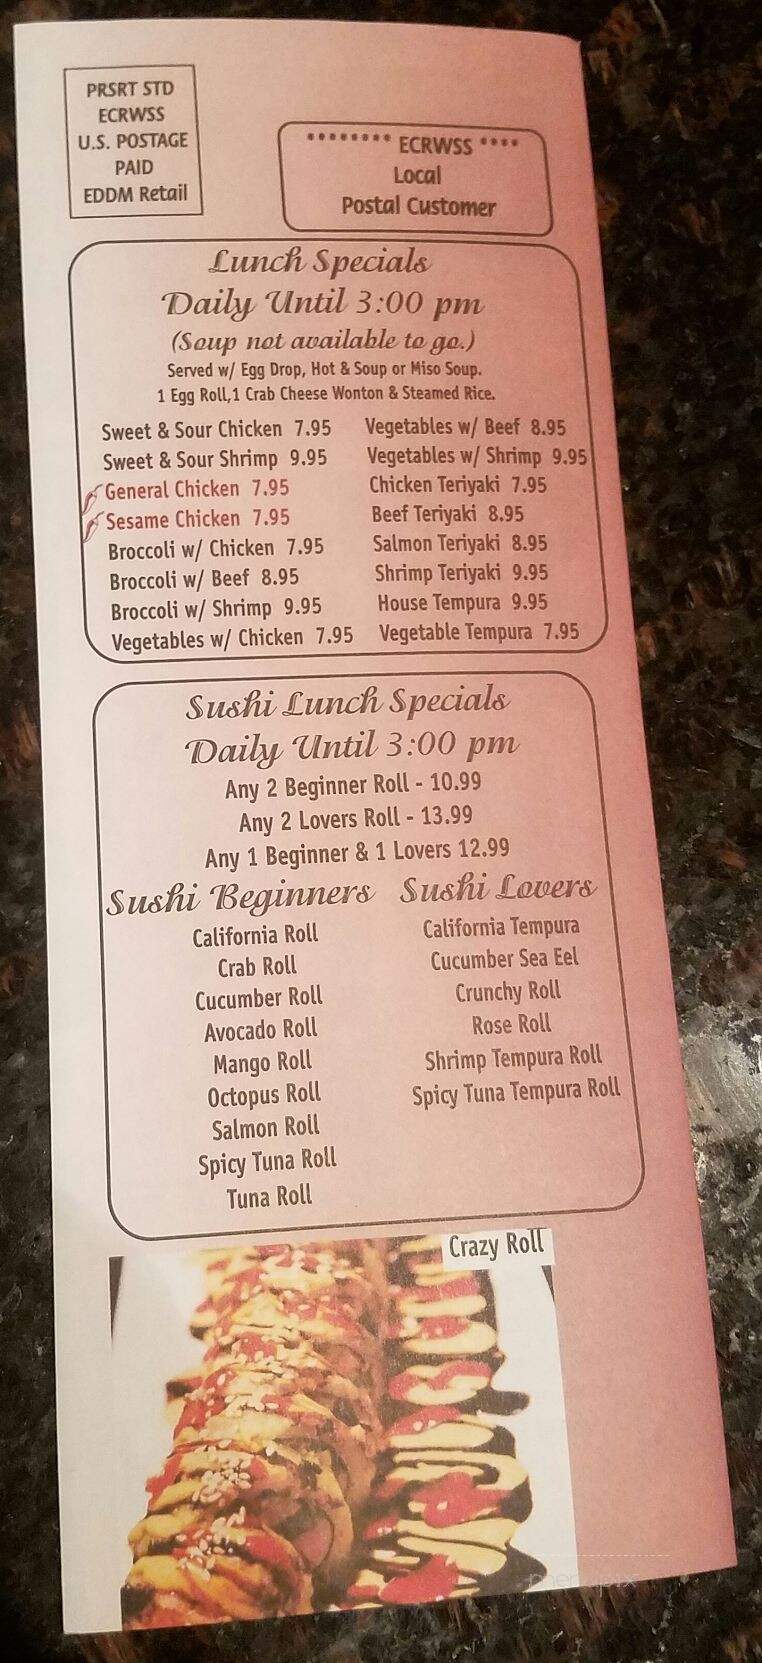 PRSRT STD
ECRWSS
U.S. POSTAGE
PAID
EDDM Retail
******** ECRWSS ****
Local
Postal Customer
Lunch Specials
Daily Until 3:00 pm
(Soup not available to go.)
Served w/ Egg Drop, Hot & Soup or Miso Soup.
1 Egg Roll,1 Crab Cheese Wonton & Steamed Rice.
Sweet & Sour Chicken 7.95
Sweet & Sour Shrimp 9.95
General Chicken 7.95
Sesame Chicken 7.95
Broccoli w/ Chicken 7.95
Broccoli w/ Beef 8.95
Broccoli w/ Shrimp 9.95
Vegetables w/ Chicken 7.95
Vegetables w/ Beef 8.95
Vegetables w/ Shrimp 9.95
Chicken Teriyaki 7.95
Beef Teriyaki 8.95
Salmon Teriyaki 8.95
Shrimp Teriyaki 9.95
House Tempura 9.95
Vegetable Tempura 7.95
Sushi Lunch Specials
Daily Until 3:00 pm
Any 2 Beginner Roll - 10.99
Any 2 Lovers Roll - 13.99
Any 1 Beginner & 1 Lovers 12.99
Sushi Beginners
California Roll
Crab Roll
Cucumber Roll
Avocado Roll
Mango Roll
Octopus Roll
Salmon Roll
Spicy Tuna Roll
Tuna Roll
Sushi Lovers
California Tempura
Cucumber Sea Eel
Crunchy Roll
Rose Roll
Shrimp Tempura Roll
Spicy Tuna Tempura Roll
Crazy Roll
menupix